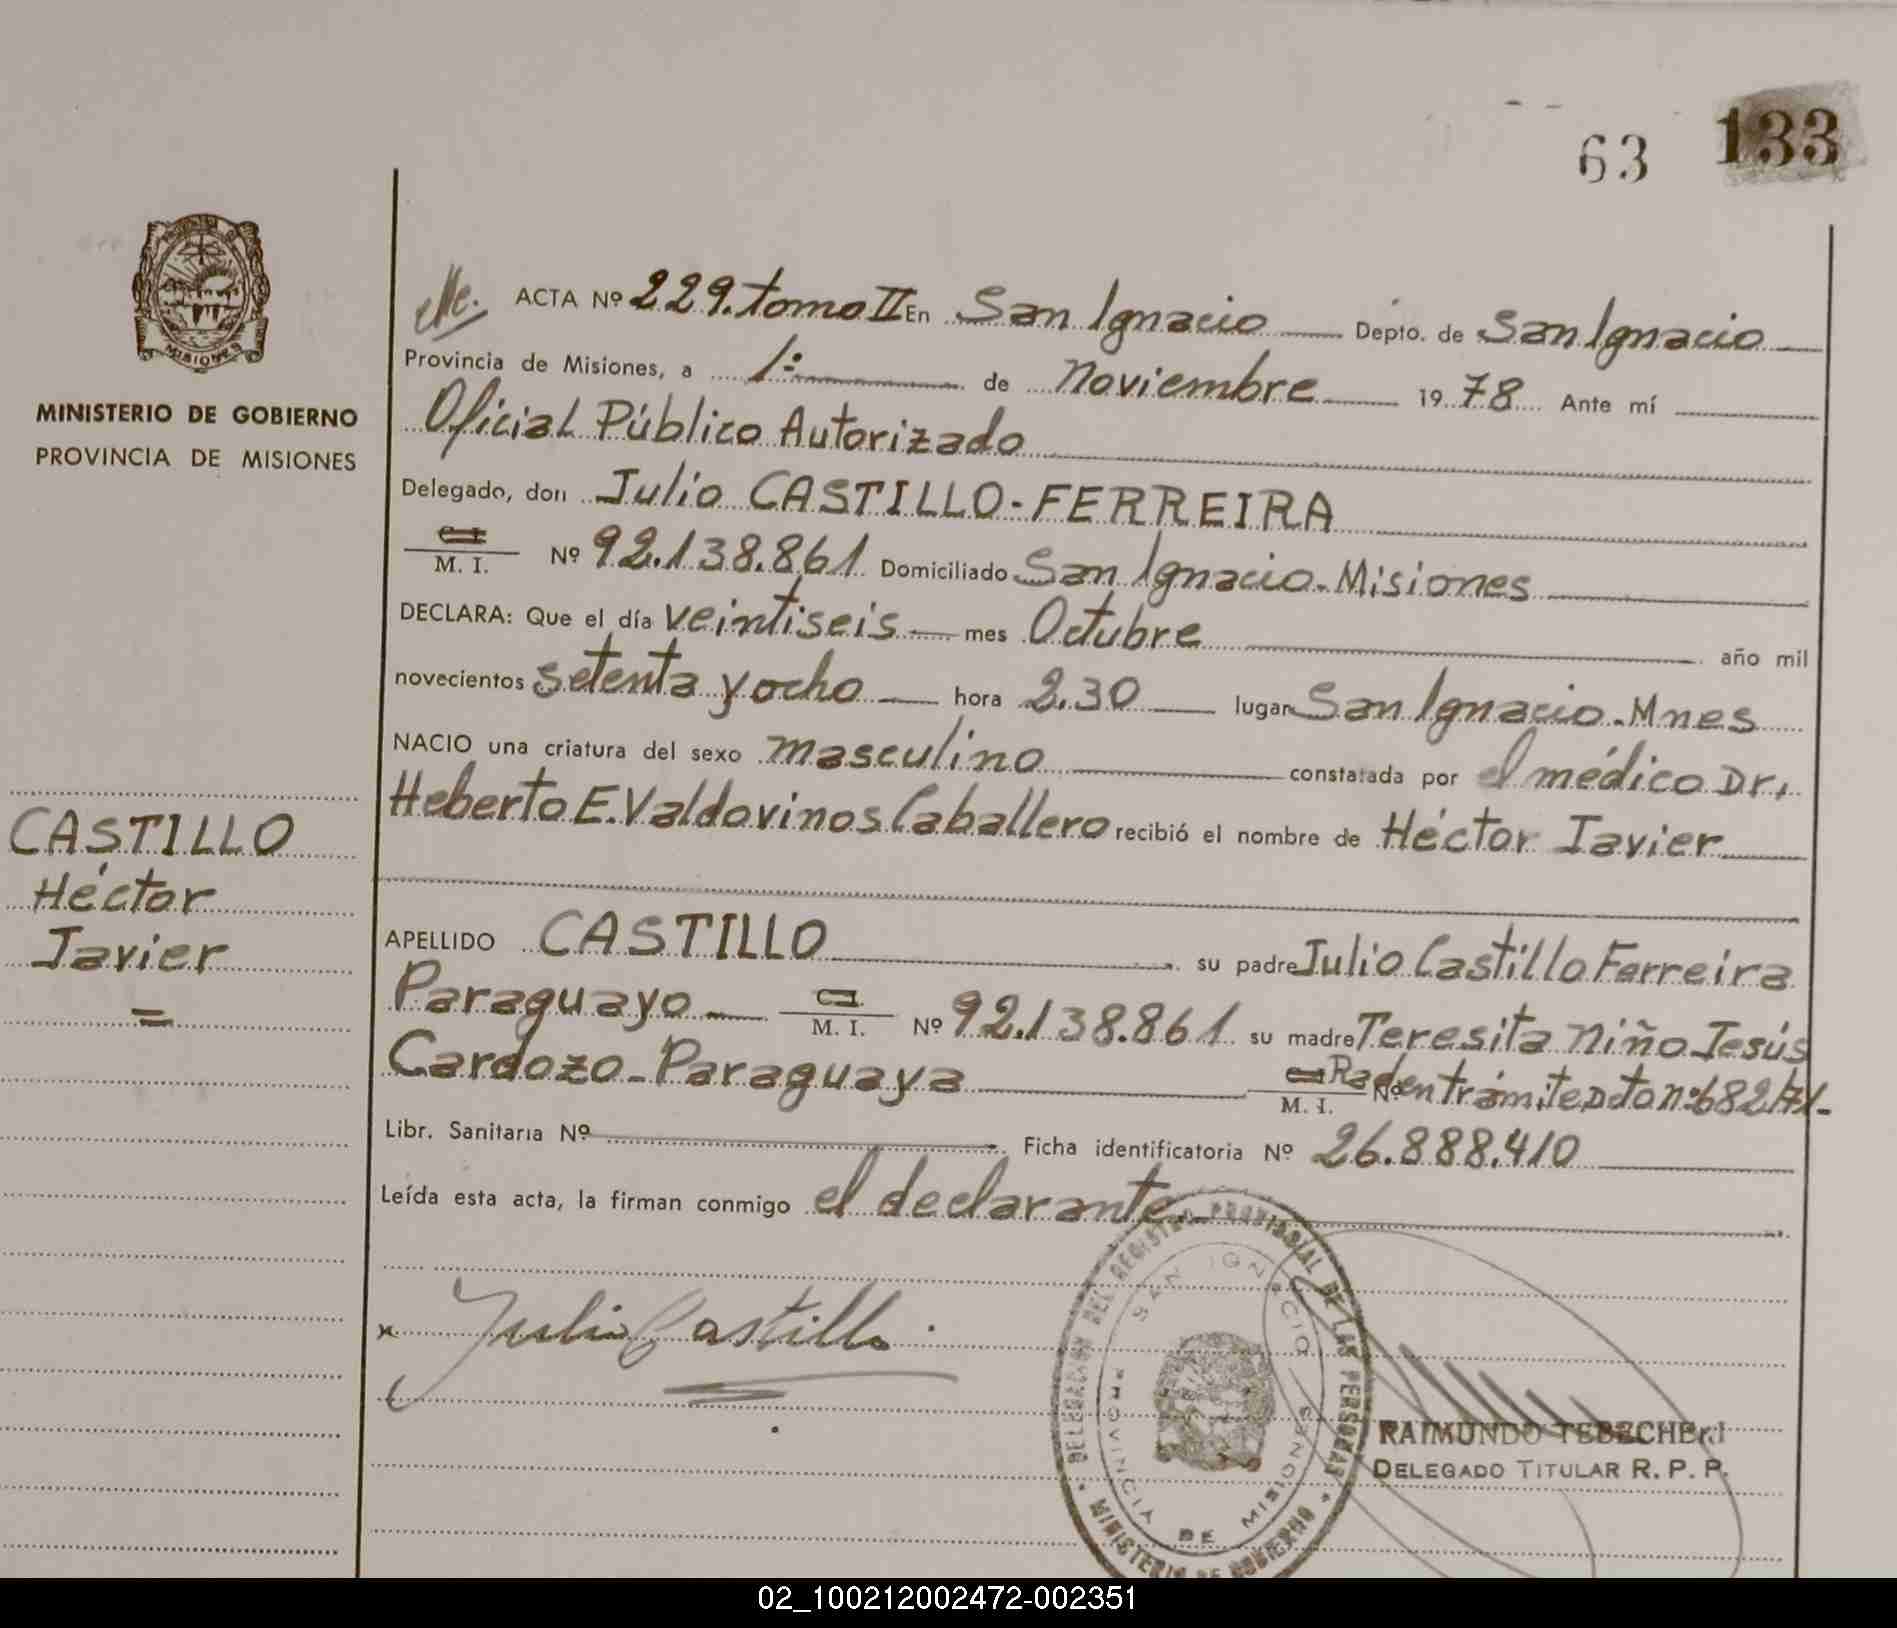 63 133
MINISTERIO DE GOBIERNO
PROVINCIA DE MISIONES
MISIONES
ACTA Nº 229. tomo II En San Ignacio Depto. de San Ignacio
Provincia de Misiones, a 1º de Noviembre 1978 Ante mí
Oficial Público Autorizado
Delegado, don Julio CASTILLO-FERREIRA
C.I. M. I. Nº 92.138.861 Domiciliado San Ignacio-Misiones
DECLARA: Que el día veintiseis mes Octubre año mil
novecientos setenta y ocho hora 2.30 lugar San Ignacio-Mnes
NACIO una criatura del sexo masculino constatada por el médico Dr.
Heberto E. Valdovinos Caballero recibió el nombre de Héctor Javier
CASTILLO
Héctor
Javier
=
APELLIDO CASTILLO su padre Julio Castillo Ferreira
Paraguayo C.I. M. I. Nº 92.138.861 su madre Teresita Niño Jesús
Cardozo-Paraguaya C.I. M. I. Nº Rad en trámite Dto nº 682/71-
Libr. Sanitaria Nº Ficha identificatoria Nº 26.888.410
Leída esta acta, la firman conmigo el declarante-
x Julio Castillo.
DELEGACION DEL REGISTRO PROVINCIAL DE LAS PERSONAS
SAN IGNACIO
PROVINCIA DE MISIONES
MINISTERIO DE GOBIERNO
RAIMUNDO
DELEGADO TITULAR R. P. P.
02_100212002472-002351